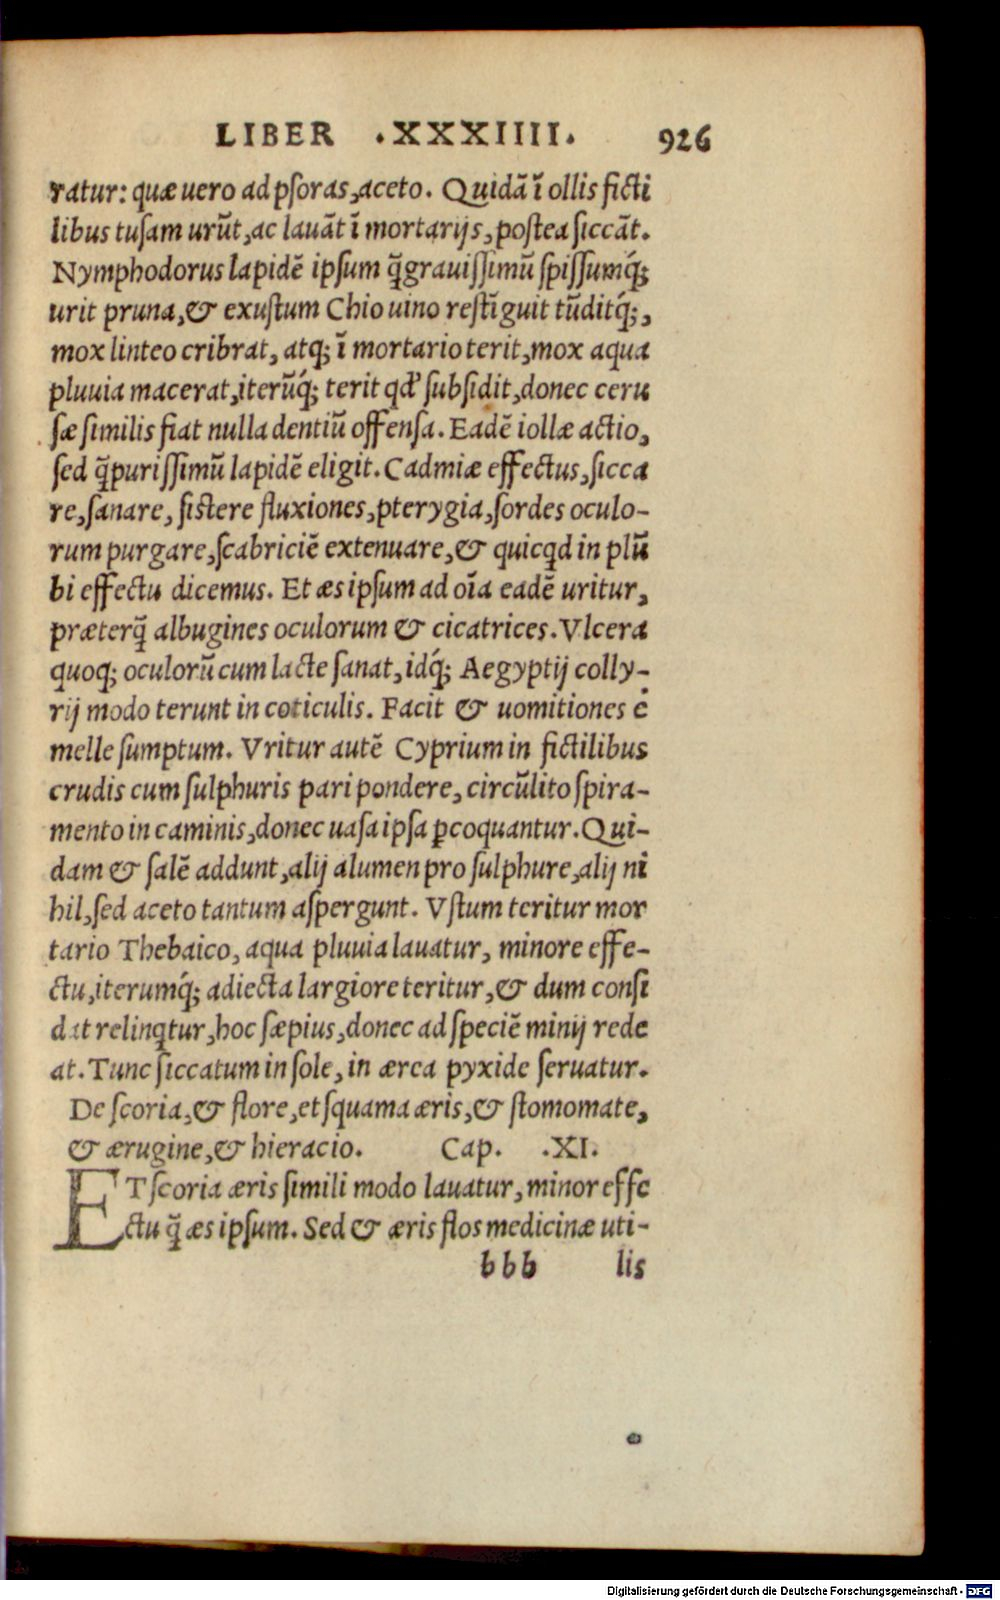 LIBER .XXXIIII. 926
ratur: quæ uero ad pſoras, aceto. Quidā ī ollis ficti
libus tuſam urūt, ac lauāt ī mortarijs, poſtea ſiccāt.
Nymphodorus lapidē ipſum q̄grauiſſimū ſpiſſumq́;
urit pruna, & exuſtum Chio uino reſtīguit tūditq́;,
mox linteo cribrat, atq́; ī mortario terit, mox aqua
pluuia macerat, iterūq́; terit qđ ſubſidit, donec ceru
ſæ ſimilis fiat nulla dentiū offenſa. Eadē iollæ actio,
ſed q̄puriſſimū lapidē eligit. Cadmiæ effectus, ſicca
re, ſanare, ſiſtere fluxiones, pterygia, ſordes oculo-
rum purgare, ſcabriciē extenuare, & quicqd in plū
bi effectu dicemus. Et æs ipſum ad oīa eadē uritur,
præterq̄ albugines oculorum & cicatrices. Vlcera
quoq; oculorū cum lacte ſanat, idq́; Aegyptij colly-
rij modo terunt in coticulis. Facit & uomitiones ė
melle ſumptum. Vritur autē Cyprium in fictilibus
crudis cum ſulphuris pari pondere, circūlito ſpira-
mento in caminis, donec uaſa ipſa ꝑcoquantur. Qui-
dam & ſalē addunt, alij alumen pro ſulphure, alij ni
hil, ſed aceto tantum aſpergunt. Vſtum teritur mor
tario Thebaico, aqua pluuia lauatur, minore effe-
ctu, iterumq́; adiecta largiore teritur, & dum conſi
dat relinqtur, hoc ſæpius, donec ad ſpeciē minij rede
at. Tunc ſiccatum in ſole, in ærea pyxide ſeruatur.
De ſcoria, & flore, et ſquama æris, & ſtomomate,
& ærugine, & hieracio. Cap. .XI.
ET ſcoria æris ſimili modo lauatur, minor effe
ctu q̄ æs ipſum. Sed & æris flos medicinæ uti-
bbb lis
Digitalisierung gefördert durch die Deutsche Forschungsgemeinschaft - DFG